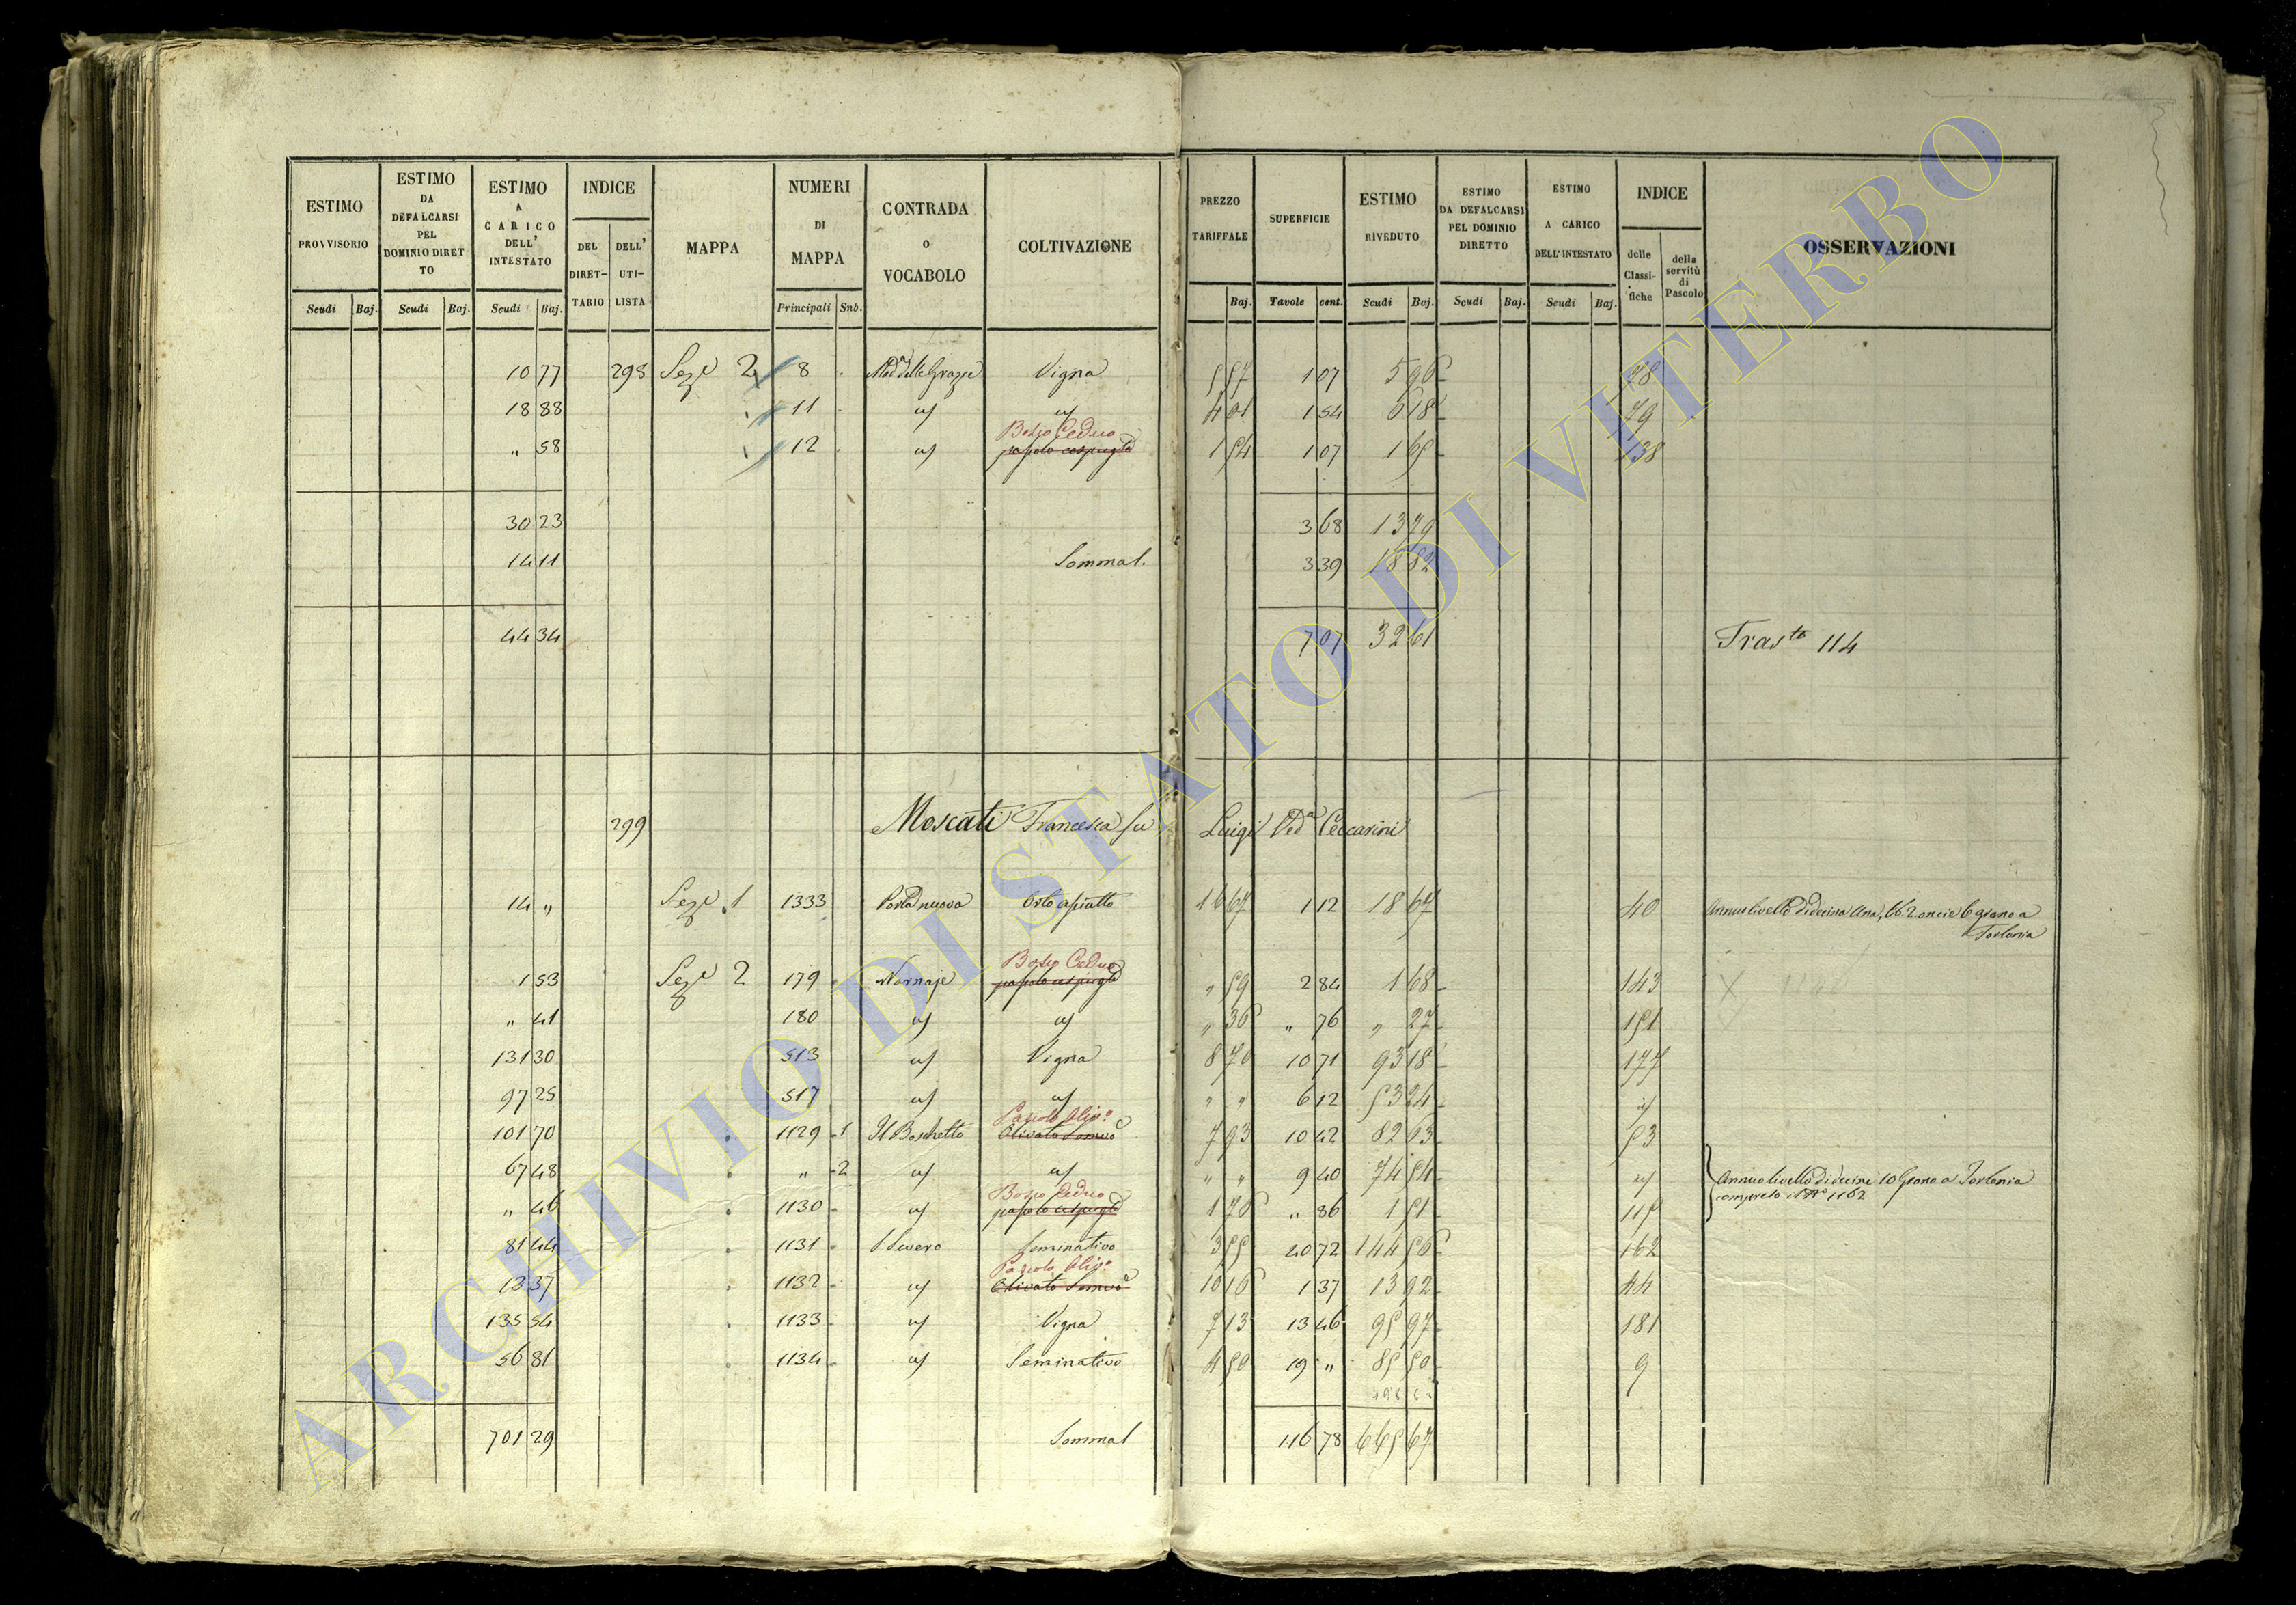 ESTIMO PROVVISORIO
ESTIMO DA DEFALCARSI PEL DOMINIO DIRETTO
ESTIMO A CARICO DELL' INTESTATO
INDICE
DEL DIRETTARIO
DELL' UTILISTA
MAPPA
NUMERI DI MAPPA
CONTRADA O VOCABOLO
COLTIVAZIONE
PREZZO TARIFFALE
SUPERFICIE
ESTIMO RIVEDUTO
ESTIMO DA DEFALCARSI PEL DOMINIO DIRETTO
ESTIMO A CARICO DELL'INTESTATO
INDICE
delle Classifiche
della servitù di Pascolo
OSSERVAZIONI
Scudi Baj. Scudi Baj. Scudi Baj. Principali Snb. Baj. Tavole cent. Scudi Baj. Scudi Baj. Scudi Baj.
10 77 298 Seze 2 8 Mada delle Grazie Vigna 5 57 1 07 5 96 78
18 88 11 " " 4 01 1 54 6 18 79
" 58 12 " Bosco Ceduo pascolo cespugliato 1 54 1 07 1 65 138
30 23 3 68 13 79
14 11 Somma l. 3 39 18 82
44 34 7 07 32 61 Trasto 114
299 Moscati Francesca fu Luigi Veda Ceccarini
14 " Seze 1 1333 Porta nuova Orto asciutto 16 67 1 12 18 67 40 Annuo livello di decina Una, lb. 2 oncie 6 grano a
Torlonia
1 53 Seze 2 179 Bosco Ceduo " 59 2 84 1 68 143
" 41 180 " " " 36 " 76 " 27 151
131 30 513 " Vigna 8 70 10 71 93 18 177
97 25 517 " " " " 6 12 53 24 "
101 70 1129 1 Il Boschetto Pascolo Olivo Olivato Semivo 7 93 10 42 82 63 53
67 48 " 2 " " " " 9 40 74 54 " Annuo livello di decine 10 Grano a Torlonia
compreso il No 1162
" 46 1130 " Bosco Ceduo pascolo cespugliato 1 76 " 86 1 51 115
81 44 1131 S Severo Seminativo 3 55 40 72 144 56 162
13 37 1132 " Pascolo Olivo Olivato Semivo 10 16 1 37 13 92 44
135 54 1133 " Vigna 7 13 13 46 95 97 181
56 81 1134 " Seminativo 4 50 19 " 85 50 9
701 29 Somma l 116 78 665 67
ARCHIVIO DI STATO DI VITERBO